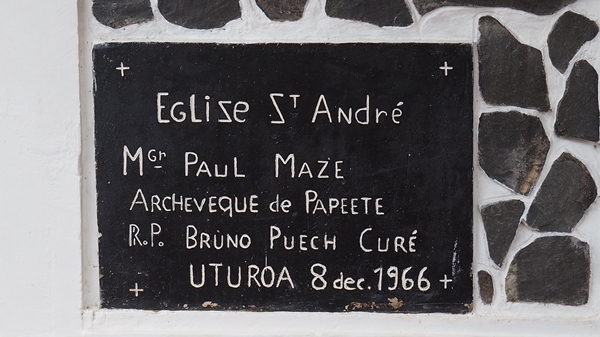 Eglise St André
Mgr Paul Maze
Archeveque de Papeete
R.P. Bruno Puech Curé
Uturoa 8 dec. 1966